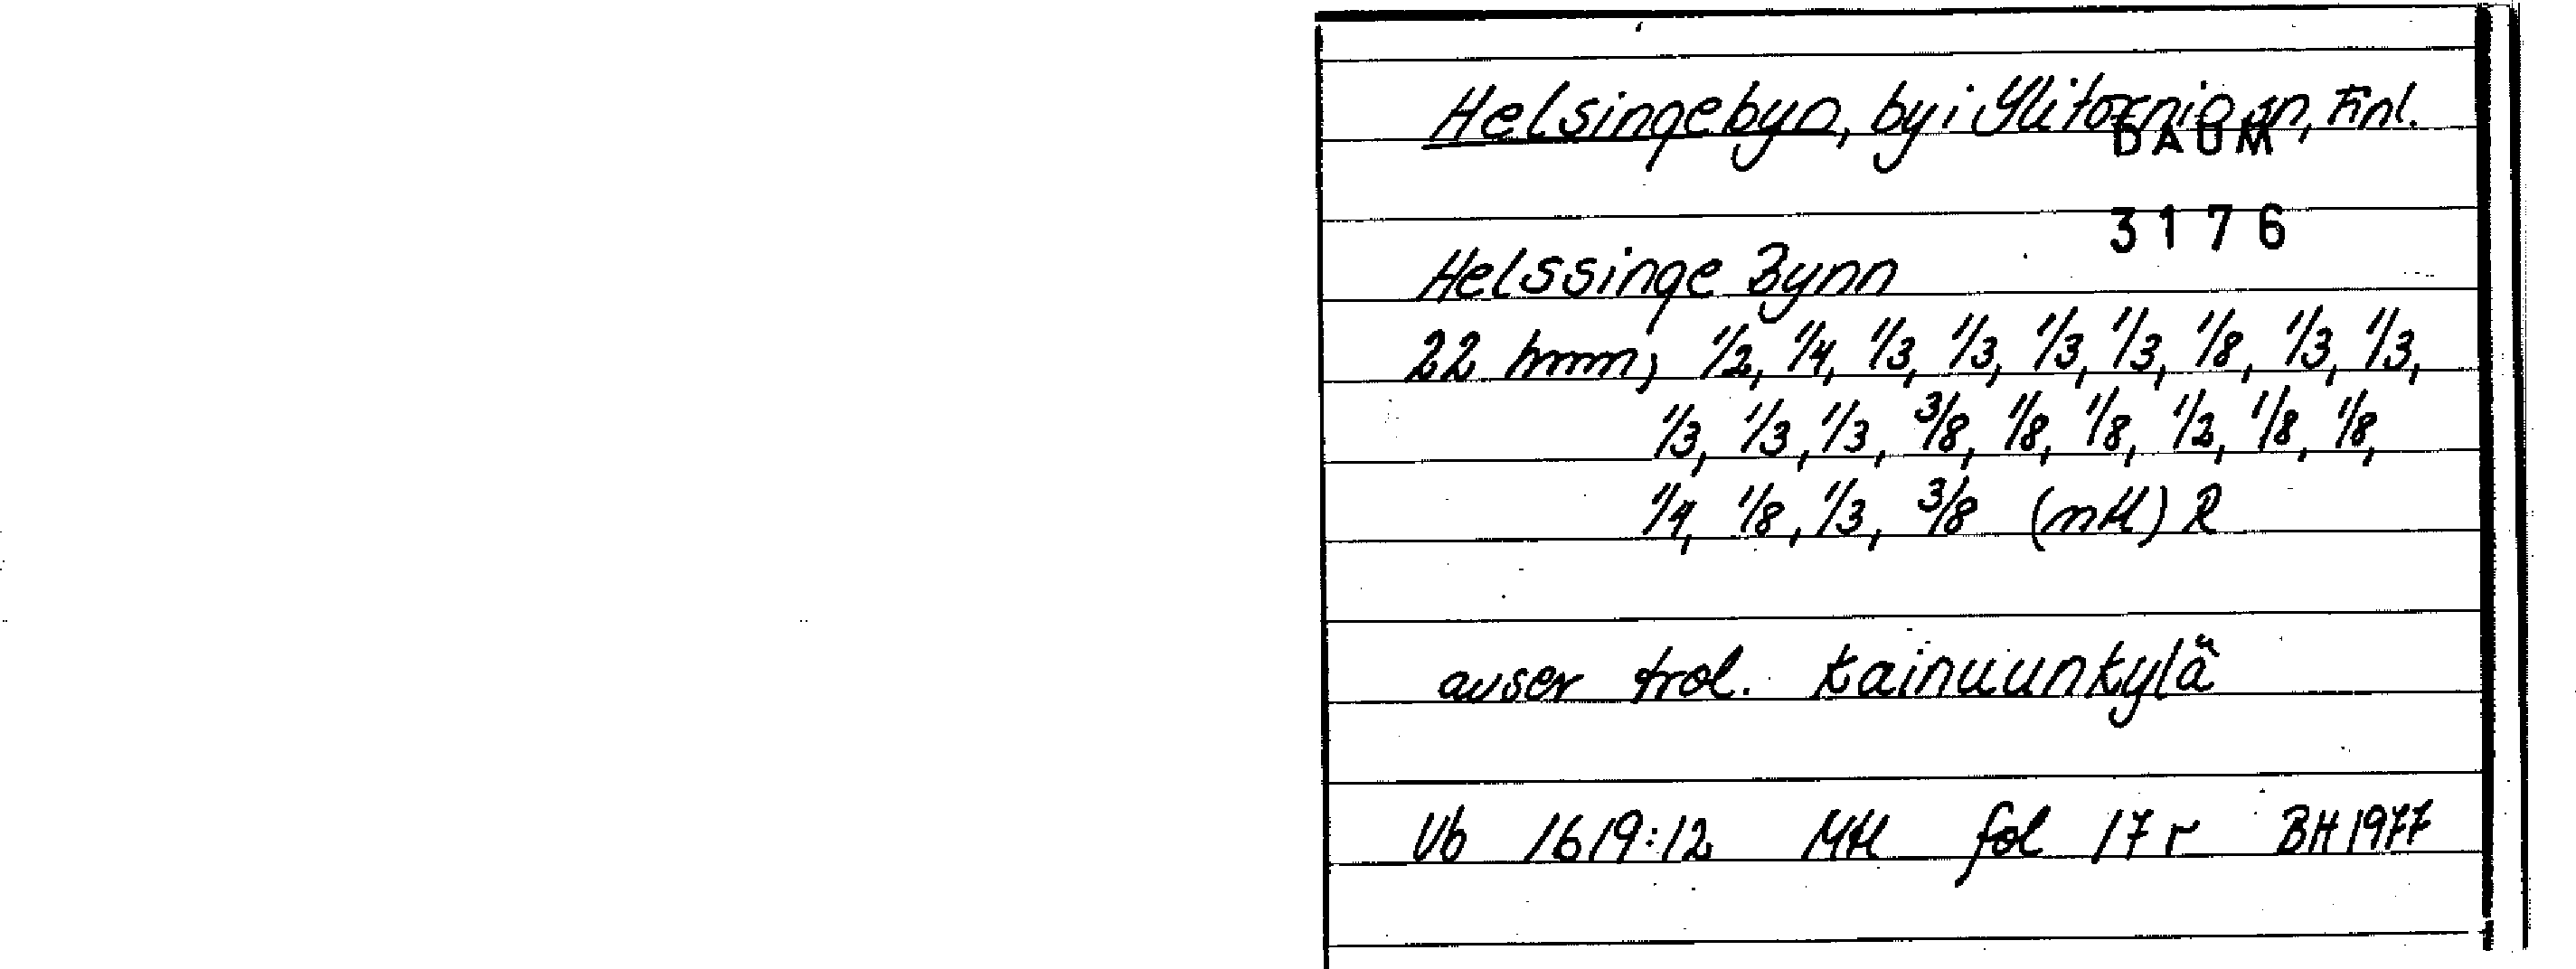 Helsingebyn, by i Ylitornio sn, Finl.
DAUM
3176
Helssinge Bynn
22 hmm; 1/2, 1/4, 1/3, 1/3, 1/3, 1/3, 1/8, 1/3, 1/3,
1/3, 1/3, 1/3, 3/8, 1/8, 1/8, 1/2, 1/8, 1/8,
1/4, 1/8, 1/3, 3/8 (mtl) R
avser trol. Kainuunkylä
Vb 1619:12 Mtl fol 17 r BH 1977